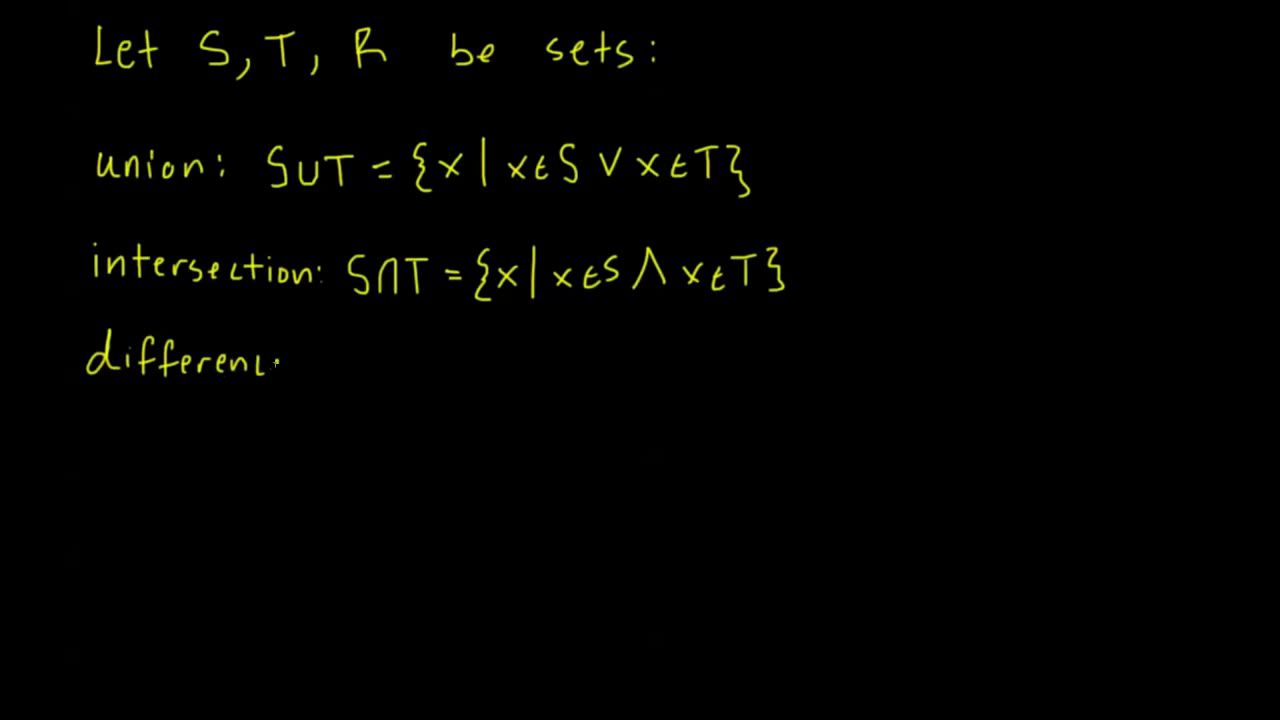 Let S, T, R be sets:
union: S∪T = {x | x∈S ∨ x∈T}
intersection: S∩T = {x | x∈S ∧ x∈T}
differenc